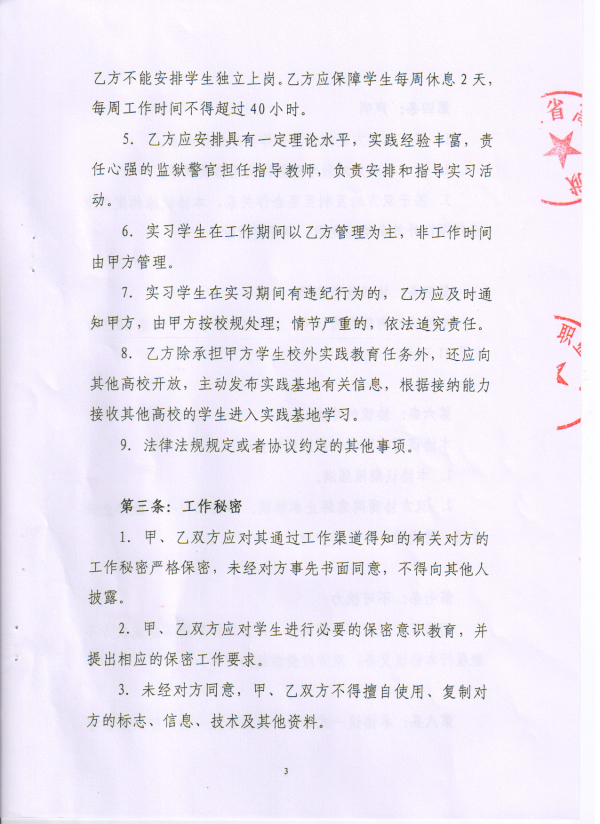 乙方不能安排学生独立上岗。乙方应保障学生每周休息2天，
每周工作时间不得超过40小时。
5. 乙方应安排具有一定理论水平，实践经验丰富，责
任心强的监狱警官担任指导教师，负责安排和指导实习活
动。
6. 实习学生在工作期间以乙方管理为主，非工作时间
由甲方管理。
7. 实习学生在实习期间有违纪行为的，乙方应及时通
知甲方，由甲方按校规处理；情节严重的，依法追究责任。
8. 乙方除承担甲方学生校外实践教育任务外，还应向
其他高校开放，主动发布实践基地有关信息，根据接纳能力
接收其他高校的学生进入实践基地学习。
9. 法律法规规定或者协议约定的其他事项。
第三条：工作秘密
1. 甲、乙双方应对其通过工作渠道得知的有关对方的
工作秘密严格保密，未经对方事先书面同意，不得向其他人
披露。
2. 甲、乙双方应对学生进行必要的保密意识教育，并
提出相应的保密工作要求。
3. 未经对方同意，甲、乙双方不得擅自使用、复制对
方的标志、信息、技术及其他资料。
3
省
职